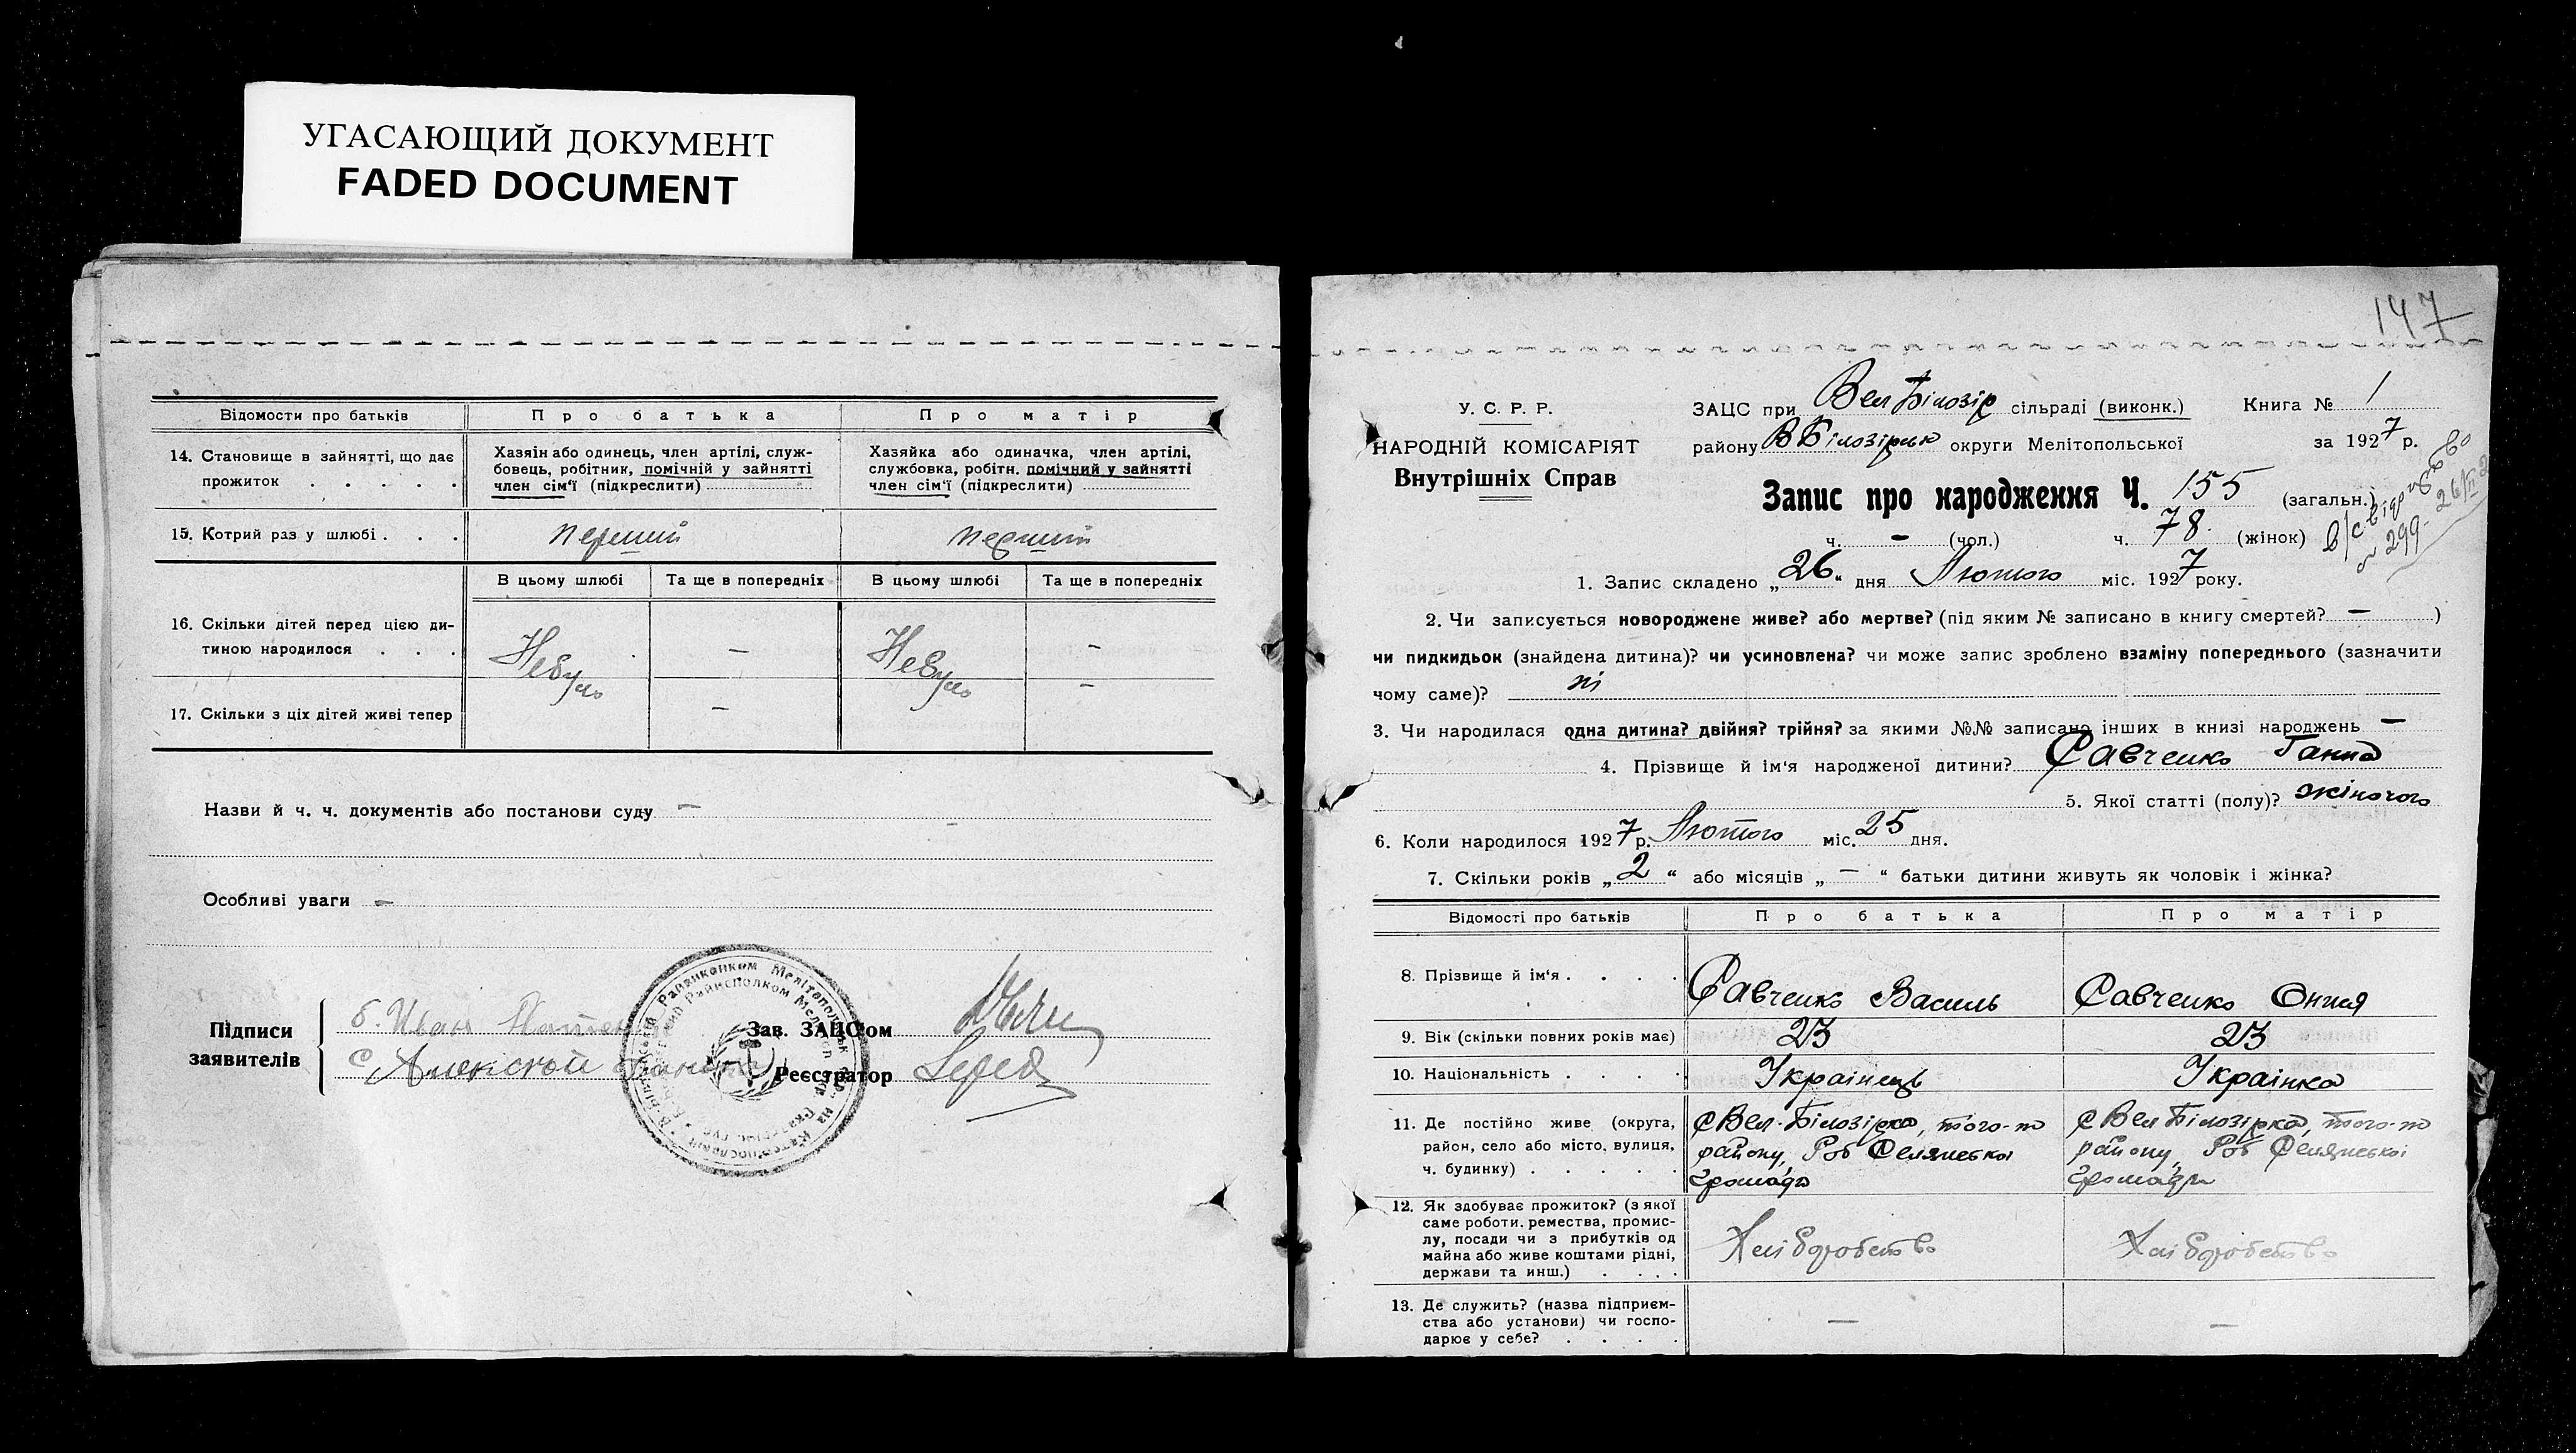 УГАСАЮЩИЙ ДОКУМЕНТ
FADED DOCUMENT
Відомости про батьків
Про батька
Про матір
14. Становище в зайнятті, що дає
прожиток . . . . .
Хазяін або одинець, член артілі, служ-
бовець, робітник, помічній у зайнятті
член сім'ї (підкреслити)
Хазяйка або одиначка, член артілі,
службовка, робітн. помічний у зайнятті
член сім'ї (підкреслити)
15. Котрий раз у шлюбі . . .
перший
перший
В цьому шлюбі
Та ще в попередніх
В цьому шлюбі
Та ще в попередніх
16. Скільки дітей перед цією ди-
тиною народилося . . .
Небуло
—
Небуло
—
17. Скільки з ціх дітей живі тепер
—
—
Назви й ч. ч. документів або постанови суду —
Особливі уваги —
Підписи
заявителів
Зав. ЗАЦС'ом
Реєстратор
147
У. С. Р. Р.
НАРОДНІЙ КОМІСАРІЯТ
Внутрішніх Справ
ЗАЦС при Вел Білозір сільраді (виконк.) Книга № 1
району В Білозірськ округи Мелітопольської за 1927 р.
Запис про народження Ч. 155 (загальн.)
ч. — (чол.) ч. 78. (жінок)
№ 299
1. Запис складено „26" дня Лютого міс. 1927 року.
2. Чи записується новороджене живе? або мертве? (під яким № записано в книгу смертей? — )
чи пидкидьок (знайдена дитина)? чи усиновлена? чи може запис зроблено взаміну попереднього (зазначити
чому саме)? ні
3. Чи народилася одна дитина? двійня? трійня? за якими №№ записано інших в книзі народжень —
4. Прізвище й ім'я народженої дитини? Савченко Ганна
5. Якої статті (полу)? жіночого
6. Коли народилося 1927 р. Лютого міс. 25 дня.
7. Скільки років „2" або місяців „—" батьки дитини живуть як чоловік і жінка?
Відомості про батьків
Про батька
Про матір
8. Прізвище й ім'я . . . .
Савченко Василь
Савченко Онися
9. Вік (скільки повних років має)
23
23
10. Національність . . . .
Українець
Українка
11. Де постійно живе (округа,
район, село або місто, вулиця,
ч. будинку) . . . . .
с Вел. Білозірка, того-ж
району, Роб Селянської
громади
с Вел Білозірка, того-ж
району, Роб Селянської
громади
12. Як здобуває прожиток? (з якої
саме роботи, ремества, промис-
лу, посади чи з прибутків од
майна або живе коштами рідні,
держави та инш.) . . . .
Хліборобство
Хліборобство
13. Де служить? (назва підприєм-
ства або установи) чи госпо-
дарює у себе? . . . .
—
—